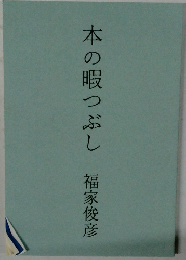 本の暇つぶし
福家俊彦